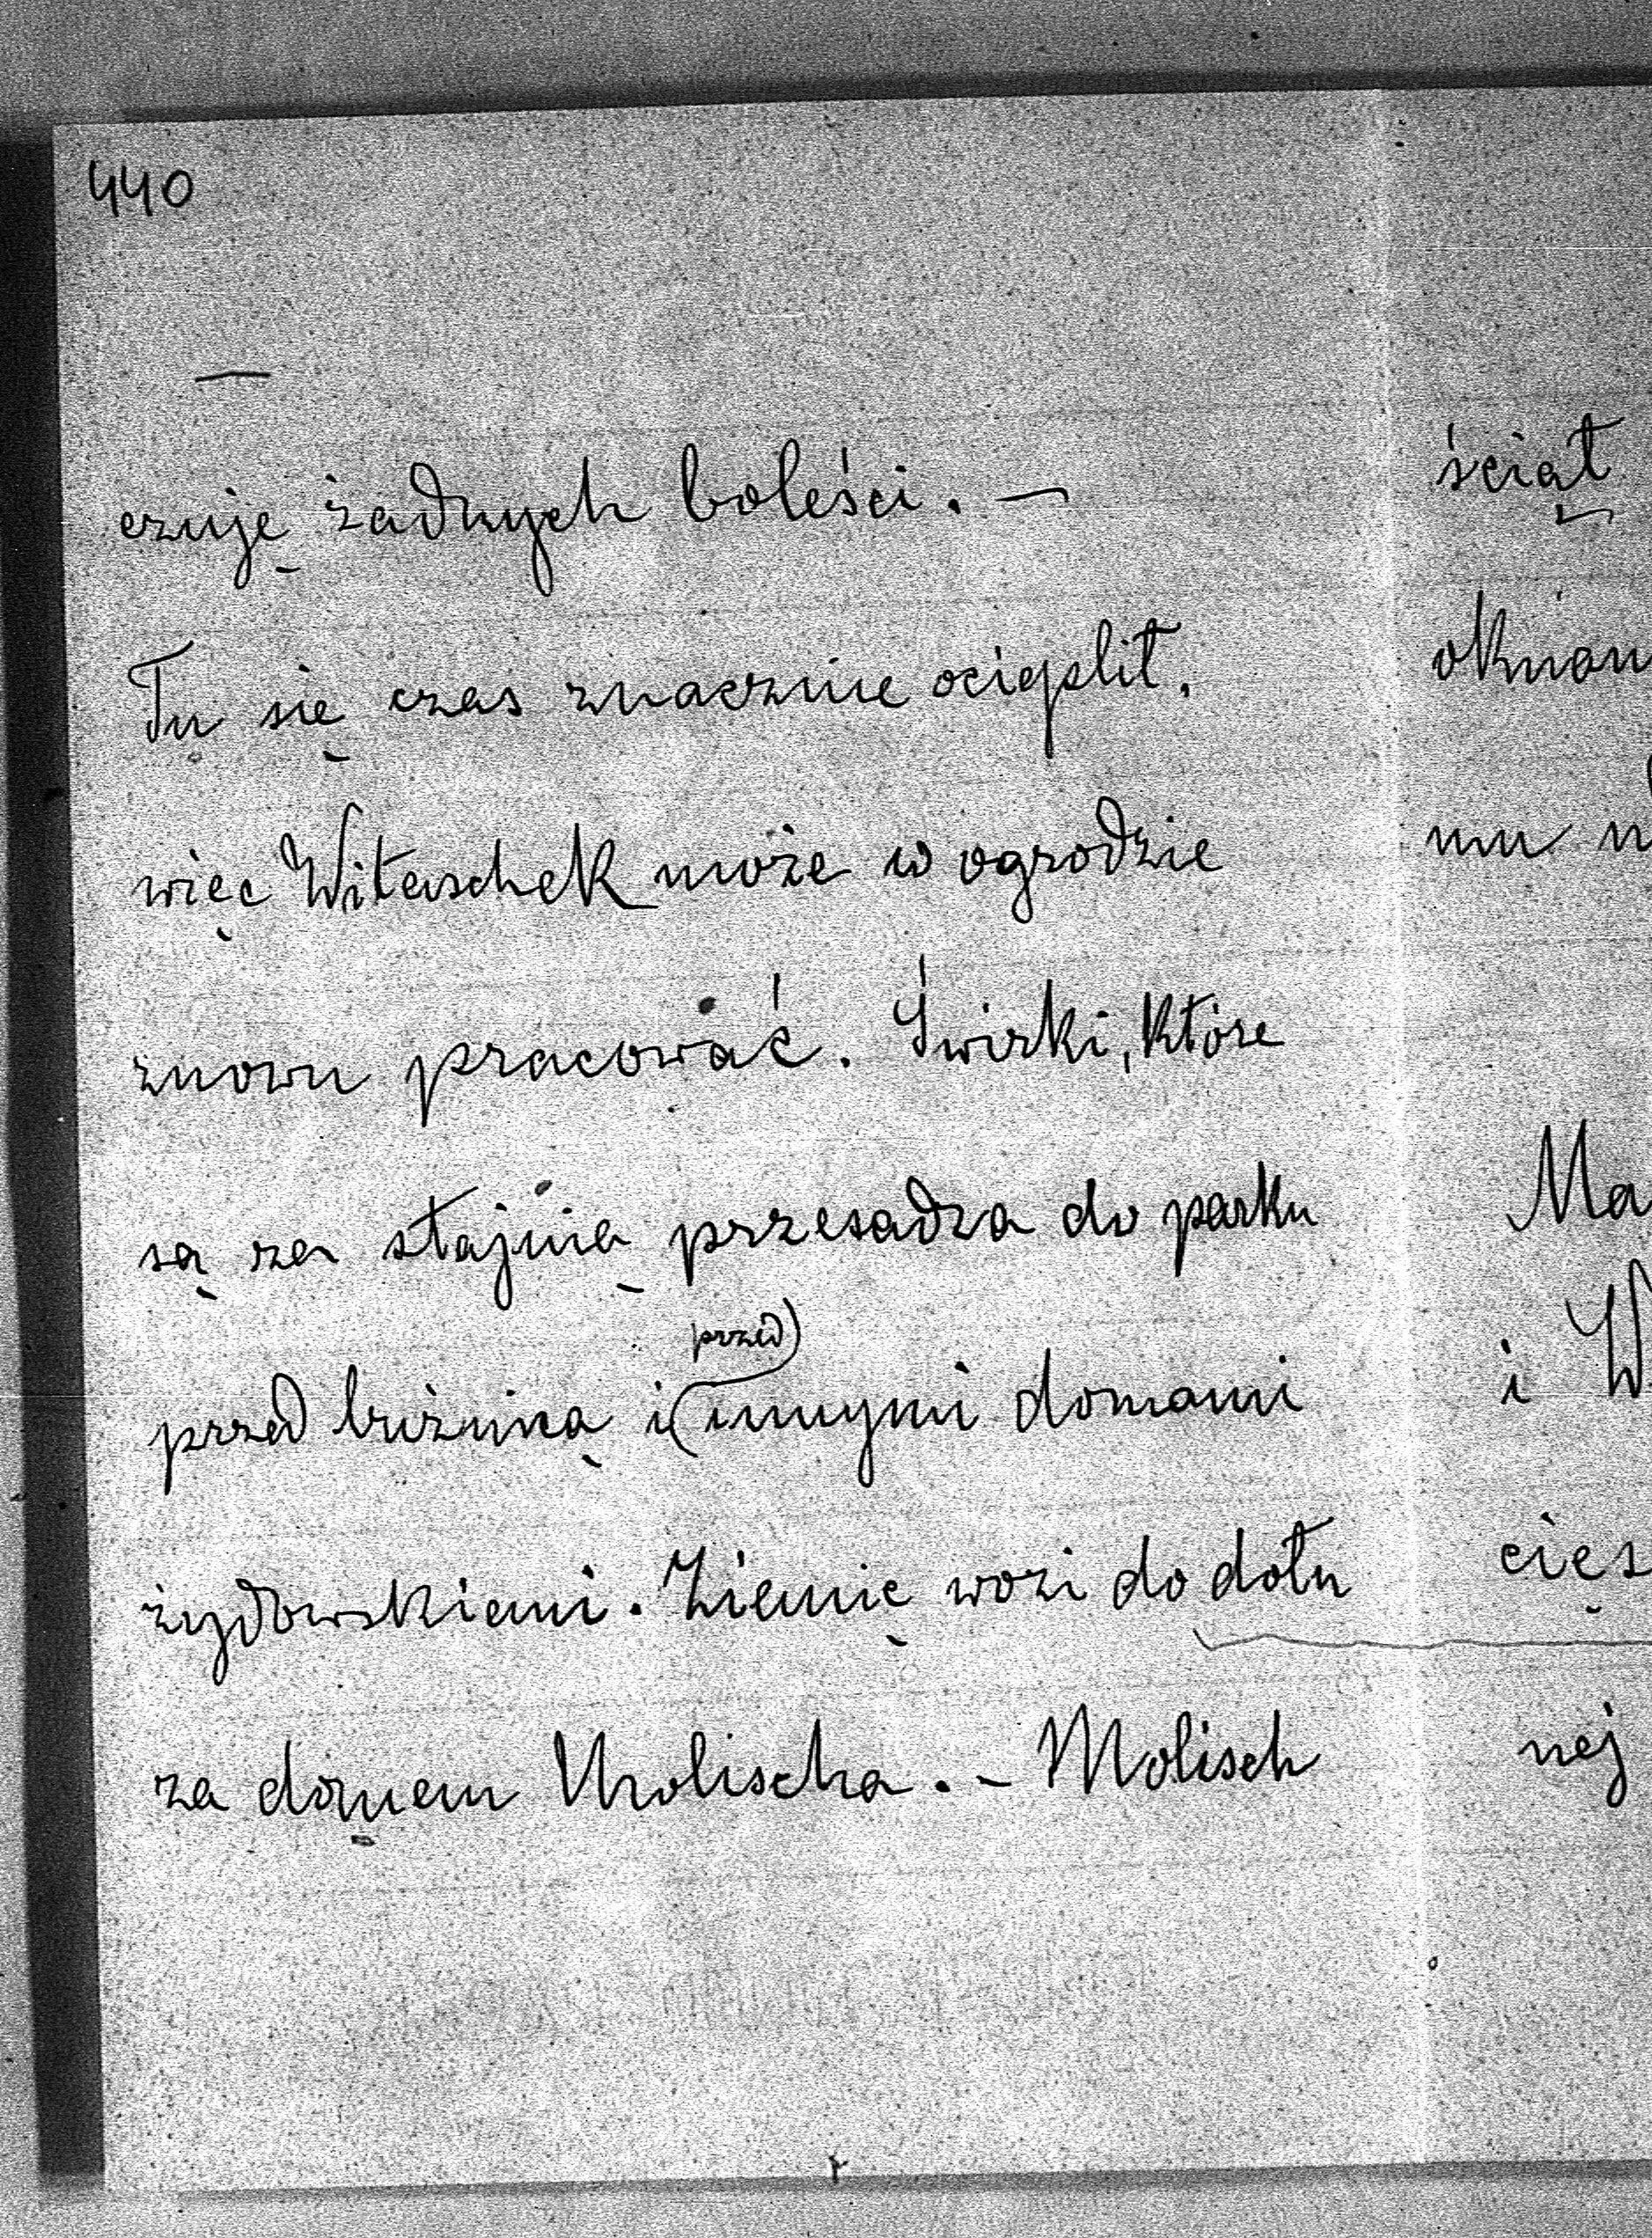 440
—
czuję żadnych boleści. —
Tu się czas znacznie ocieplił,
więc Witaschek może w ogrodzie
znowu pracować. Świrki, które
są za stajnią przesadza do parku
przed
przed bużnicą i innymi domami
żydowskiemi. Ziemię wozi do dołu
za domem Molischa. – Molisch
ściął
oknom
mu
Ma
i W
cięs
nej